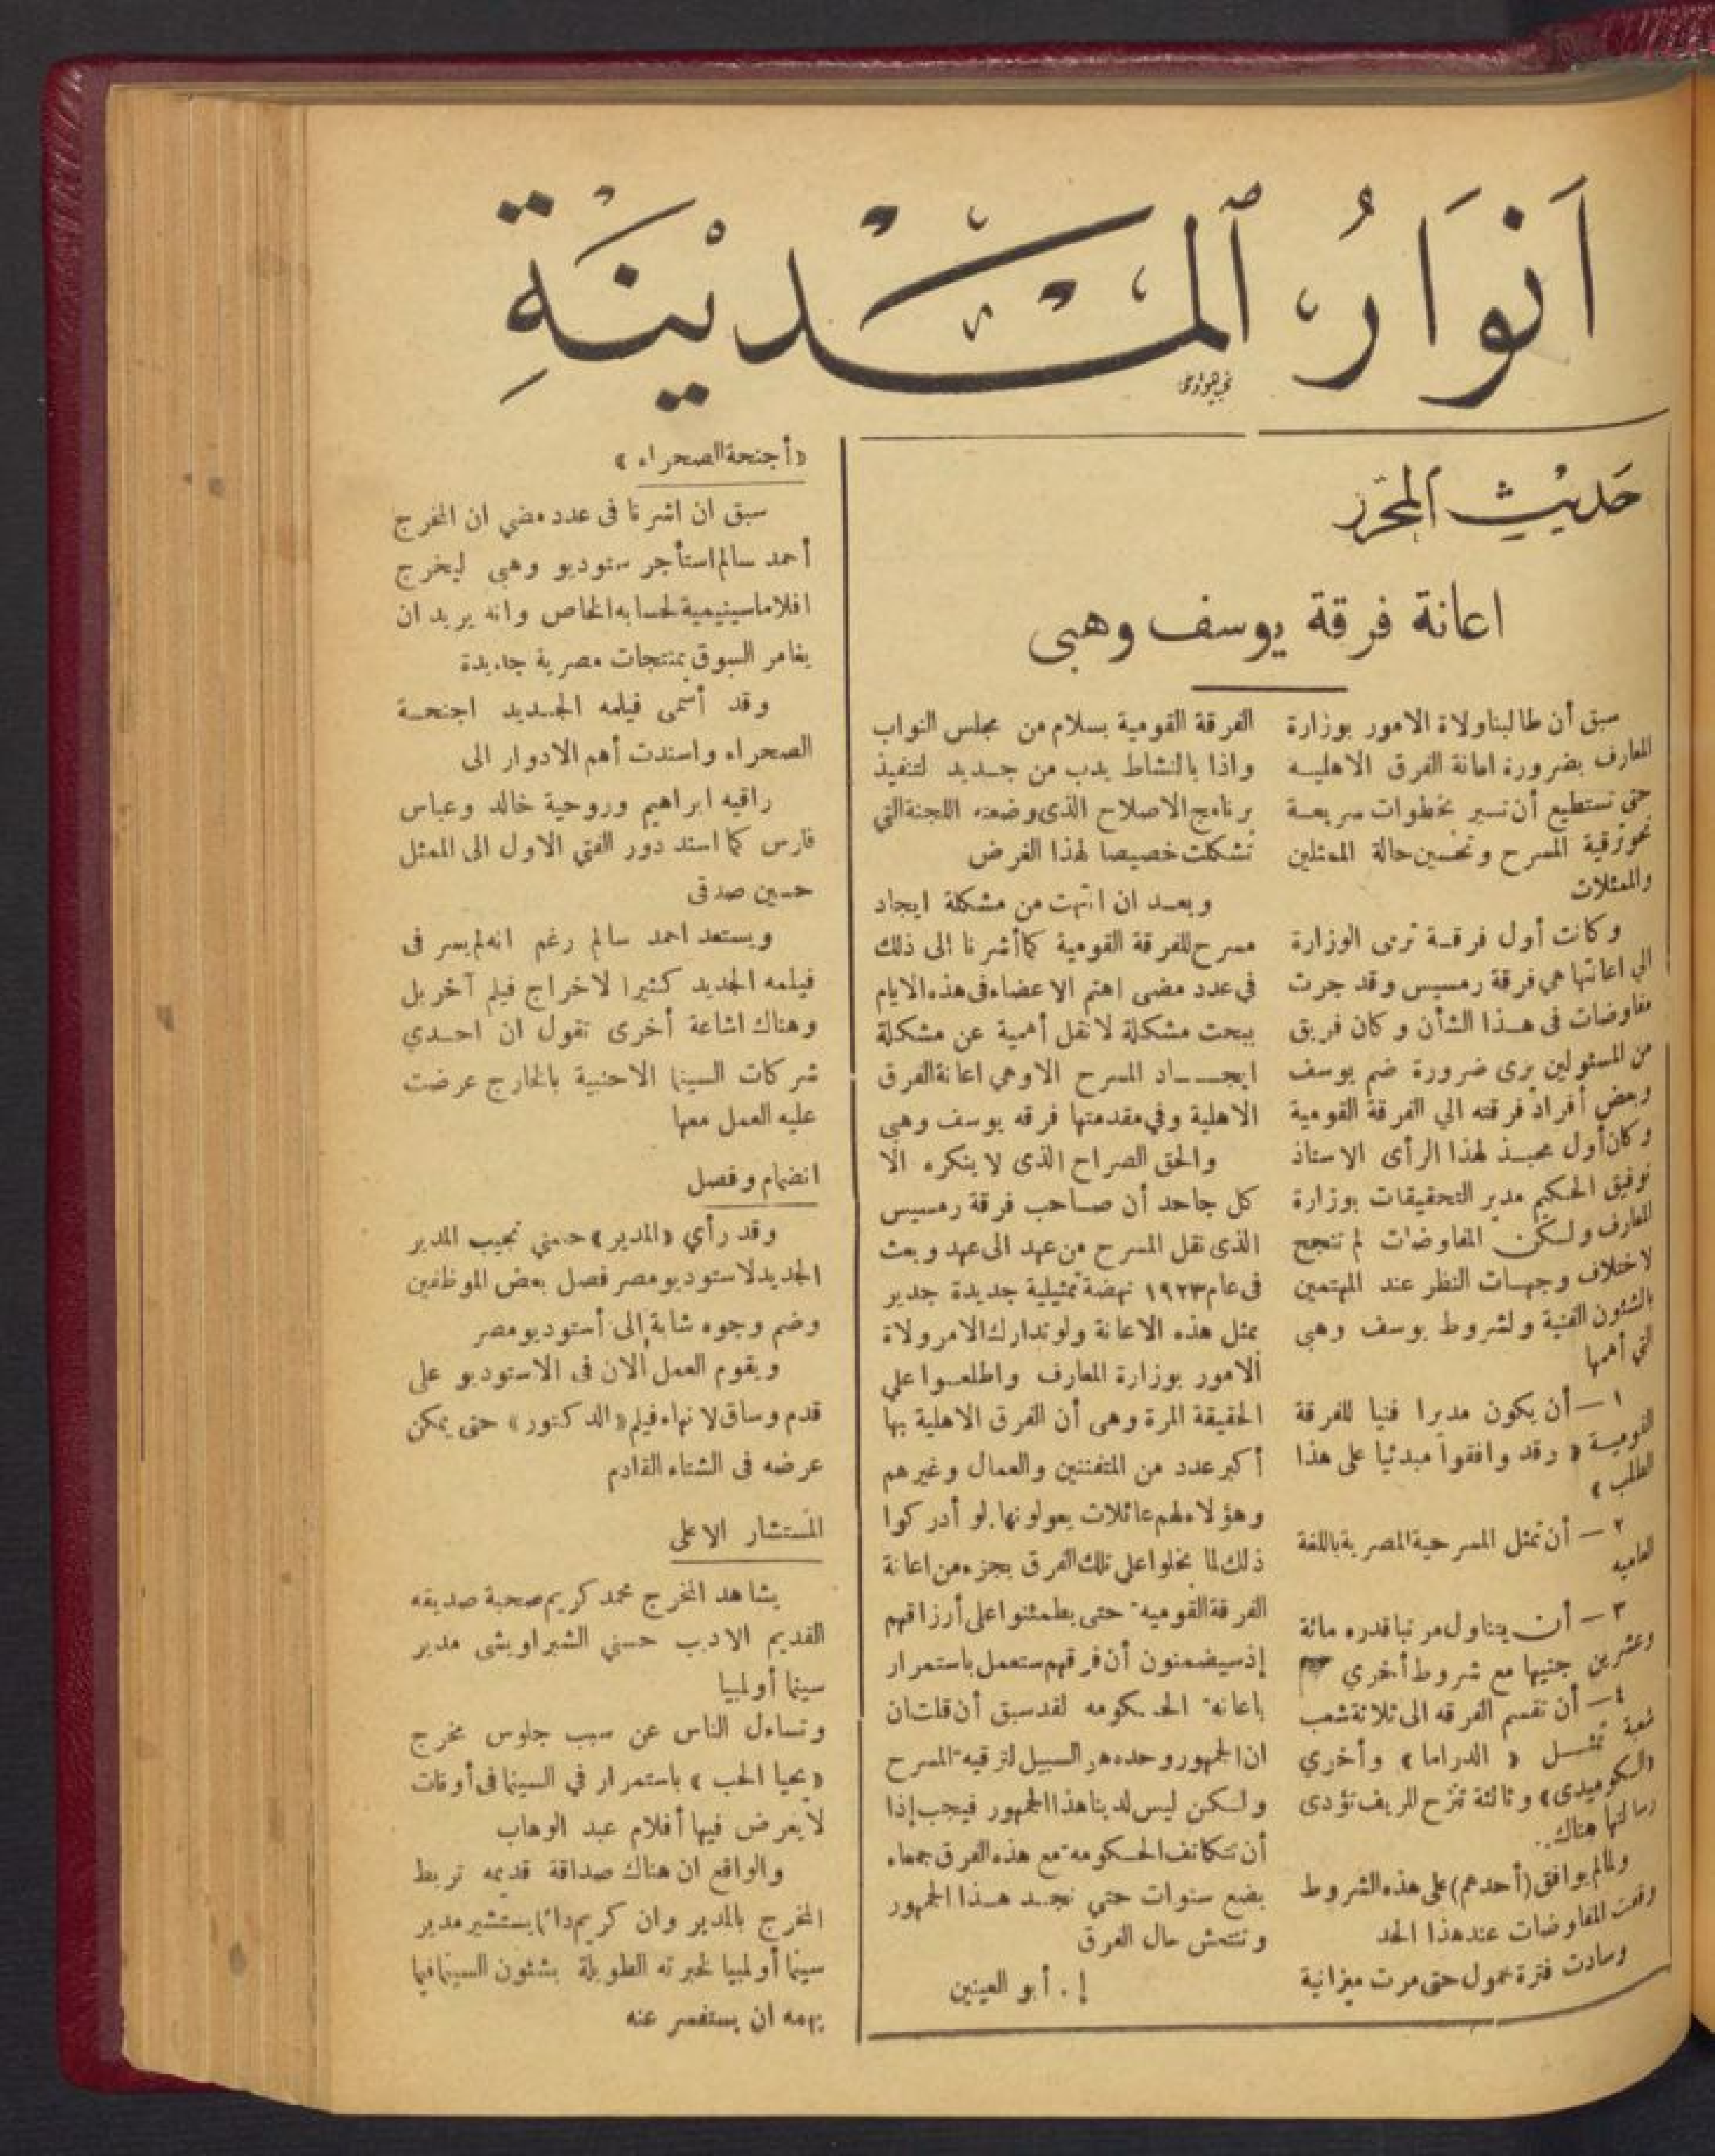 أنوار المدينة
حديث المحرر
اعانة فرقة يوسف وهبى
سبق أن طالبنا ولاة الامور بوزارة
المعارف بضرورة اعانة الفرق الاهليه
حتي تستطيع أن تسير بخطوات سريعة
نحو ترقية المسرح وتحسين حالة الممثلين
والممثلات
وكانت أول فرقة ترى الوزارة
الي اعانتها هي فرقة رمسيس وقد جرت
مفاوضات فى هذا الشأن وكان فريق
من المسئولين يرى ضرورة ضم يوسف
وبعض أفراد فرقته الي الفرقة القومية
وكان أول محبذ لهذا الرأى الاستاذ
توفيق الحكيم مدير التحقيقات بوزارة
المعارف ولكن المفاوضات لم تنجح
لاختلاف وجهات النظر عند المهتمين
بالشئون الفنية ولشروط يوسف وهبى
التي أهمها
١ — أن يكون مديرا فنيا للفرقة
القومية « وقد وافقوا مبدئيا على هذا
الطلب »
٢ — أن تمثل المسرحية المصرية باللغة
العاميه
٣ — أن يتناول مرتبا قدره مائة
وعشرين جنيها مع شروط أخري
٤ — أن تقسم الفرقه الى ثلاثة شعب
شعبة تمثل « الدراما » وأخري
«الكوميدى» وثالثة تنزح للريف تؤدى
رسالتها هناك..
ولما لم يوافق (أحدهم) على هذه الشروط
وقفت المفاوضات عند هذا الحد
وسادت فترة خمول حتى مرت ميزانية
الفرقة القومية بسلام من مجلس النواب
واذا بالنشاط يدب من جديد لتنفيذ
برنامج الاصلاح الذى وضعته اللجنة التي
تشكلت خصيصا لهذا الغرض
وبعد ان انتهت من مشكلة ايجاد
مسرح للفرقة القومية كما أشرنا الى ذلك
في عدد مضى اهتم الاعضاء فى هذه الايام
ببحث مشكلة لا تقل أهمية عن مشكلة
ايجاد المسرح الا وهي اعانة الفرق
الاهلية وفي مقدمتها فرقه يوسف وهبي
والحق الصراح الذى لا ينكره الا
كل جاحد أن صاحب فرقة رمسيس
الذى نقل المسرح من عهد الى عهد وبعث
فى عام ١٩٢٣ نهضة تمثيلية جديدة جدير
بمثل هذه الاعانة ولو تدارك الامر ولاة
الامور بوزارة المعارف واطلعوا علي
الحقيقة المرة وهى أن الفرق الاهلية بها
أكبر عدد من المتفننين والعمال وغيرهم
وهؤلاء لهم عائلات يعولونها. لو أدركوا
ذلك لما بخلوا على تلك الفرق بجزء من اعانة
الفرقة القوميه حتى يطمئنوا على أرزاقهم
إذ سيضمنون أن فرقهم ستعمل باستمرار
باعانة الحكومه لقد سبق أن قلت ان
ان الجمهور وحده هر السبيل لترقيه المسرح
ولكن ليس لدينا هذا الجمهور فيجب إذا
أن تتكاتف الحكومه مع هذه الفرق جمعاء
بضع سنوات حتي نجد هذا الجمهور
وتنتعش حال الفرق
إ . أبو العينين
«أجنحة الصحراء»
سبق ان اشرنا فى عدد مضي ان المخرج
أحمد سالم استأجر ستوديو وهبى ليخرج
افلاما سينيمية لحسابه الخاص وانه يريد ان
يغامر السوق بمنتجات مصرية جديدة
وقد أسمى فيلمه الجديد اجنحة
الصحراء واسندت أهم الادوار الى
راقيه ابراهيم وروحية خالد وعباس
فارس كما اسند دور الفتي الاول الى الممثل
حسين صدقى
ويستعد احمد سالم رغم انه لم يسر فى
فيلمه الجديد كثيرا لاخراج فيلم آخر بل
وهناك اشاعة أخرى تقول ان احدي
شركات السينما الاجنبية بالخارج عرضت
عليه العمل معها
انضمام وفصل
وقد رأي «المدير» حسني نجيب المدير
الجديد لاستوديو مصر فصل بعض الموظفين
وضم وجوه شابة إلى أستوديو مصر
ويقوم العمل الان فى الاستوديو على
قدم وساق لانهاء فيلم «الدكتور» حتى يمكن
عرضه فى الشتاء القادم
المستشار الاعلى
يشاهد المخرج محمد كريم صحبة صديقه
القديم الاديب حسني الشبراويشى مدير
سينما أولمبيا
وتساءل الناس عن سبب جلوس مخرج
«يحيا الحب» باستمرار في السينما فى أوقات
لا يعرض فيها أفلام عبد الوهاب
والواقع ان هناك صداقة قديمه تربط
المخرج بالمدير وان كريم دائما يستشير مدير
سينما أولمبيا لخبرته الطويلة بشئون السينما فيما
يهمه ان يستفسر عنه